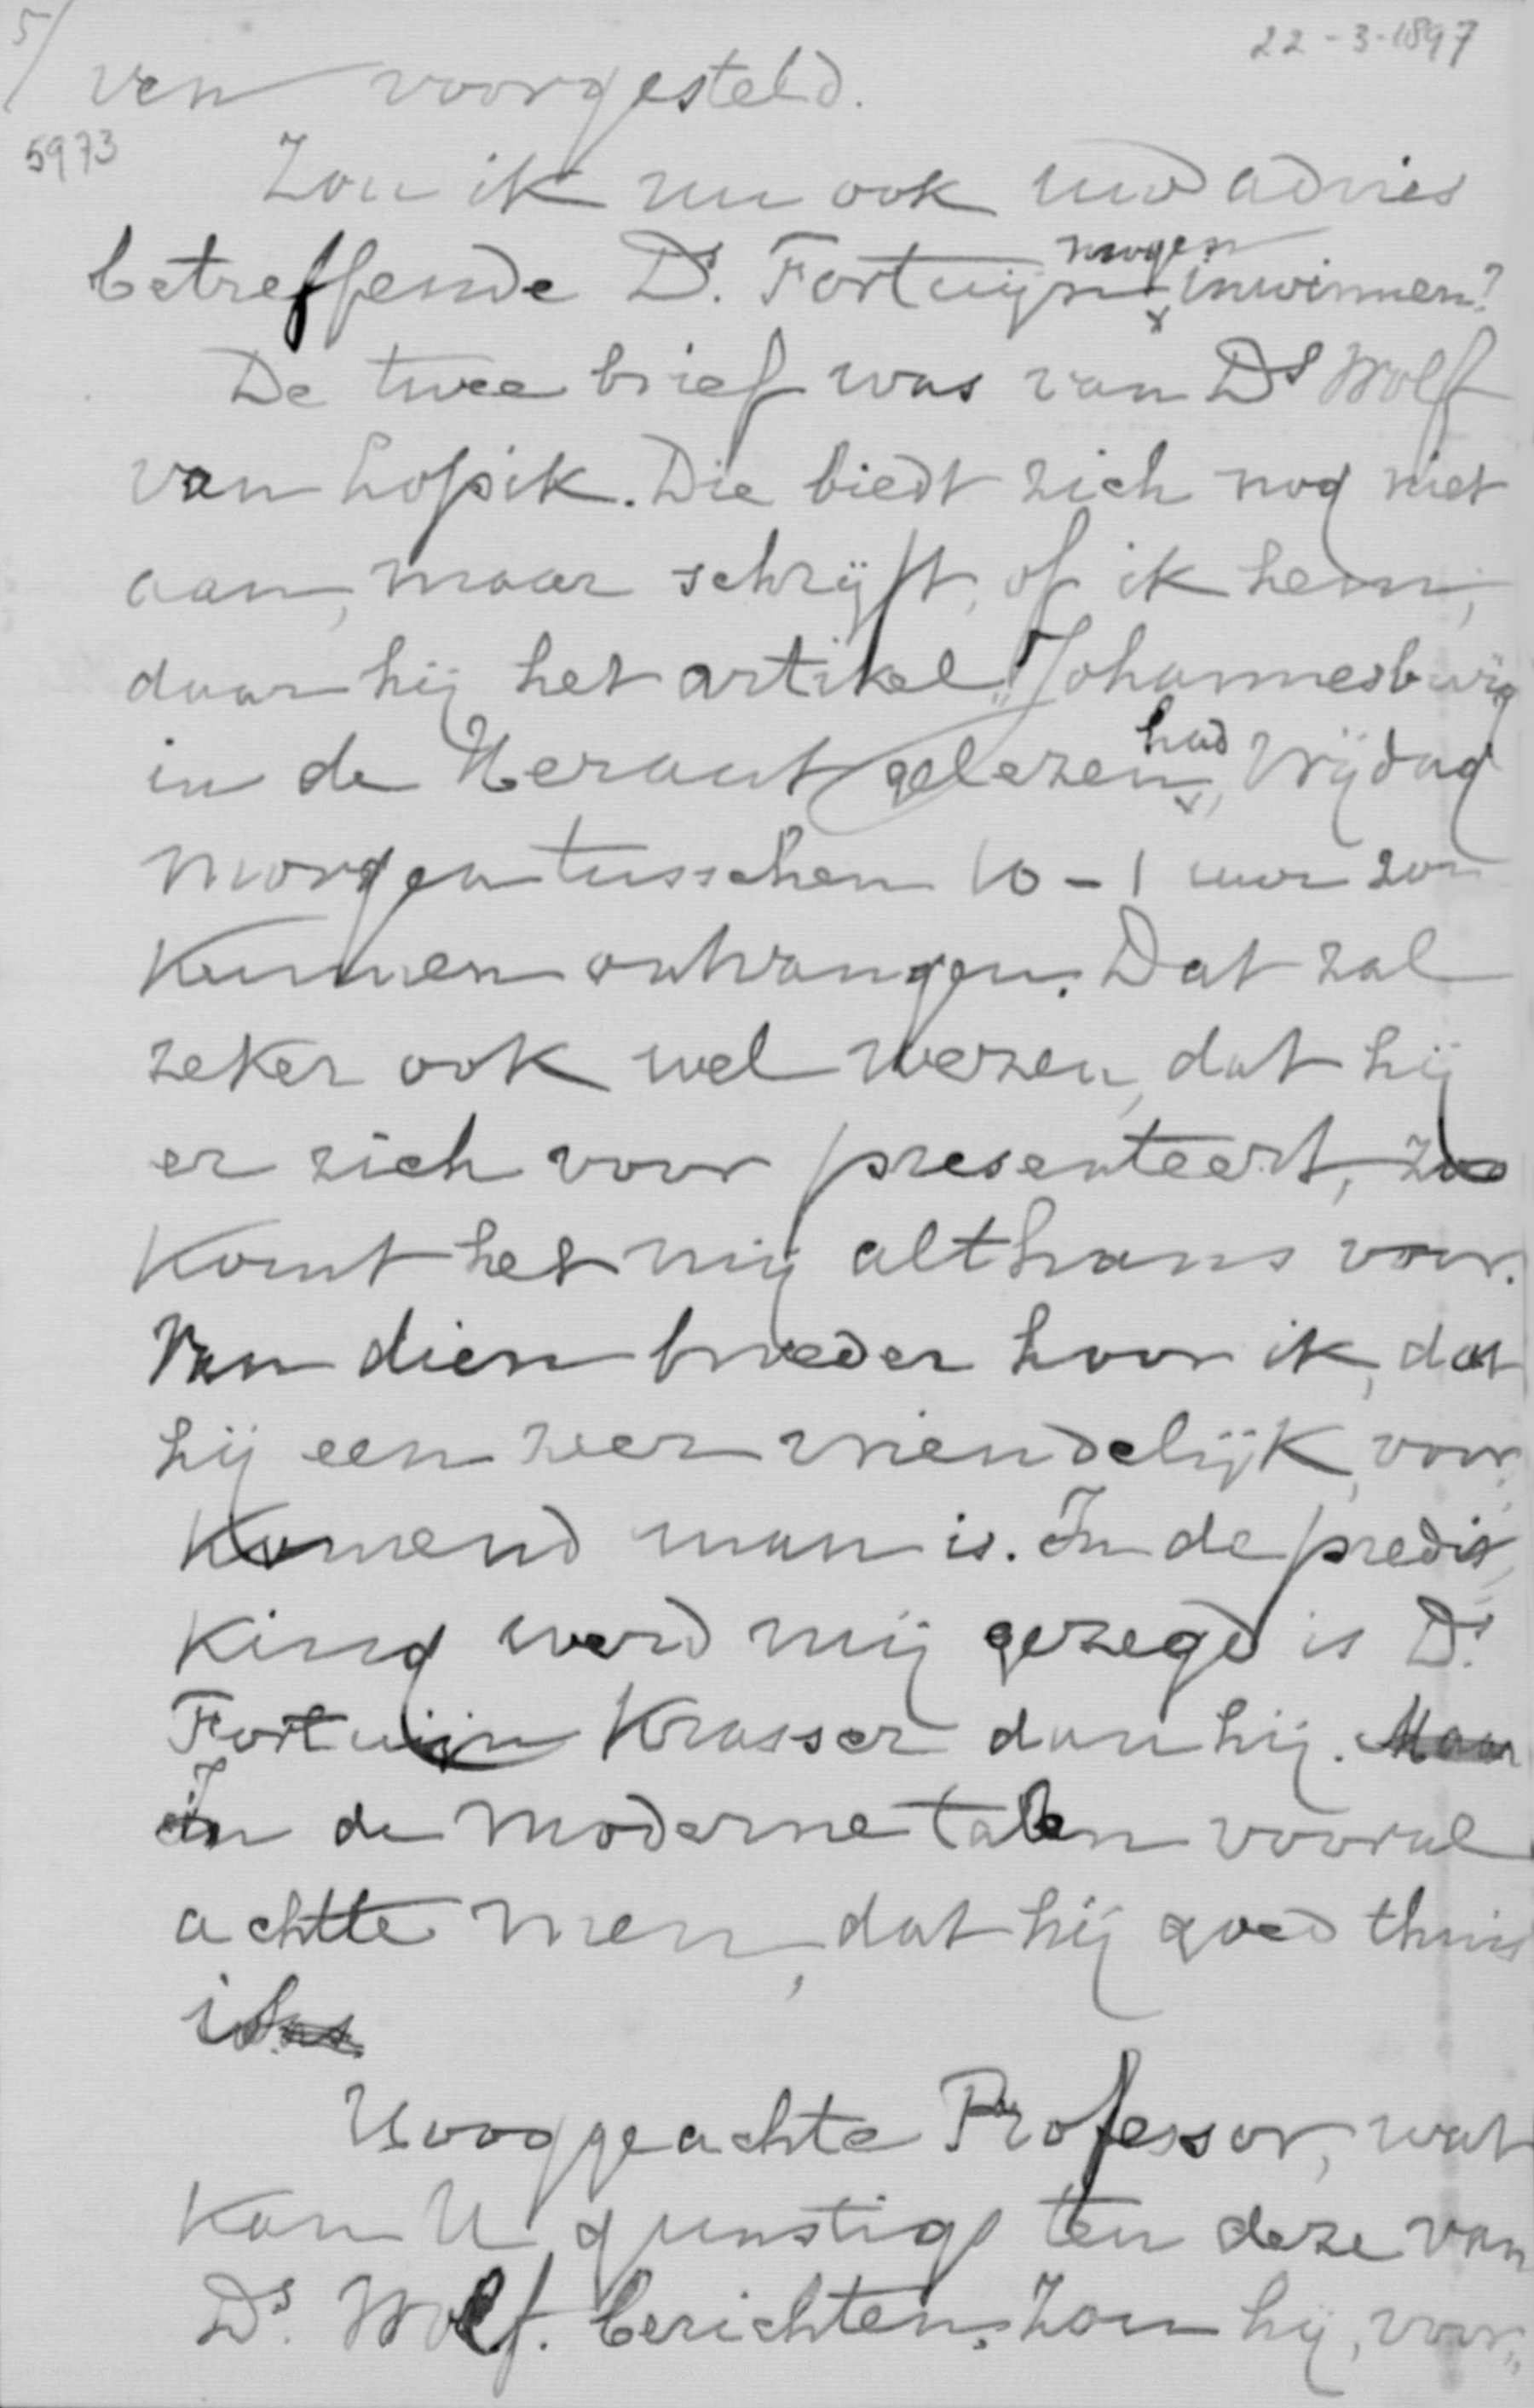 5/
22-3-1897
ven voorgesteld.
5973
Zou ik nu ook uw advies
betreffende Ds. Fortuijn mogen inwinnen?
De twee brief was van Ds Wolf
van Lopik. Die biedt zich nog niet
aan, maar schrijft, of ik hem,
daar hij het artikel "Johannesburg
in de Heraut gelezen had, Vrijdag
morgen tusschen 10-1 uur zou
kunnen ontvangen. Dat zal
zeker ook wel wezen, dat hij
er zich voor presenteert, zoo
komt het mij althans voor.
Van dien broeder hoor ik, dat
hij een zeer vriendelijk, voor„
komend man is. In de predi„
king werd mij gezegd is Ds.
Fortuijn krasser dan hij. Maar
In de moderne talen vooral
achtte men, dat hij goed thuis
is.
Hooggeachte Professor, wat
kan U gunstigs ten deze van
Ds. Wolf. berichten. Zou hij, voor„